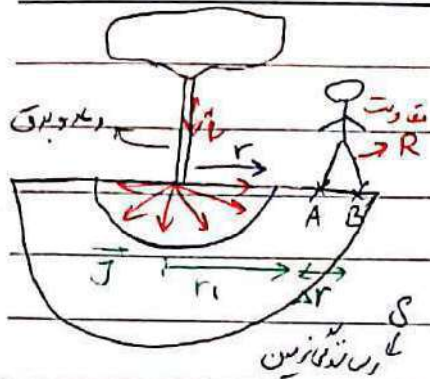 رعد و برق
i
r
مقاومت
R
A B
J
r₁ Δr
S
رسانندگی زمین